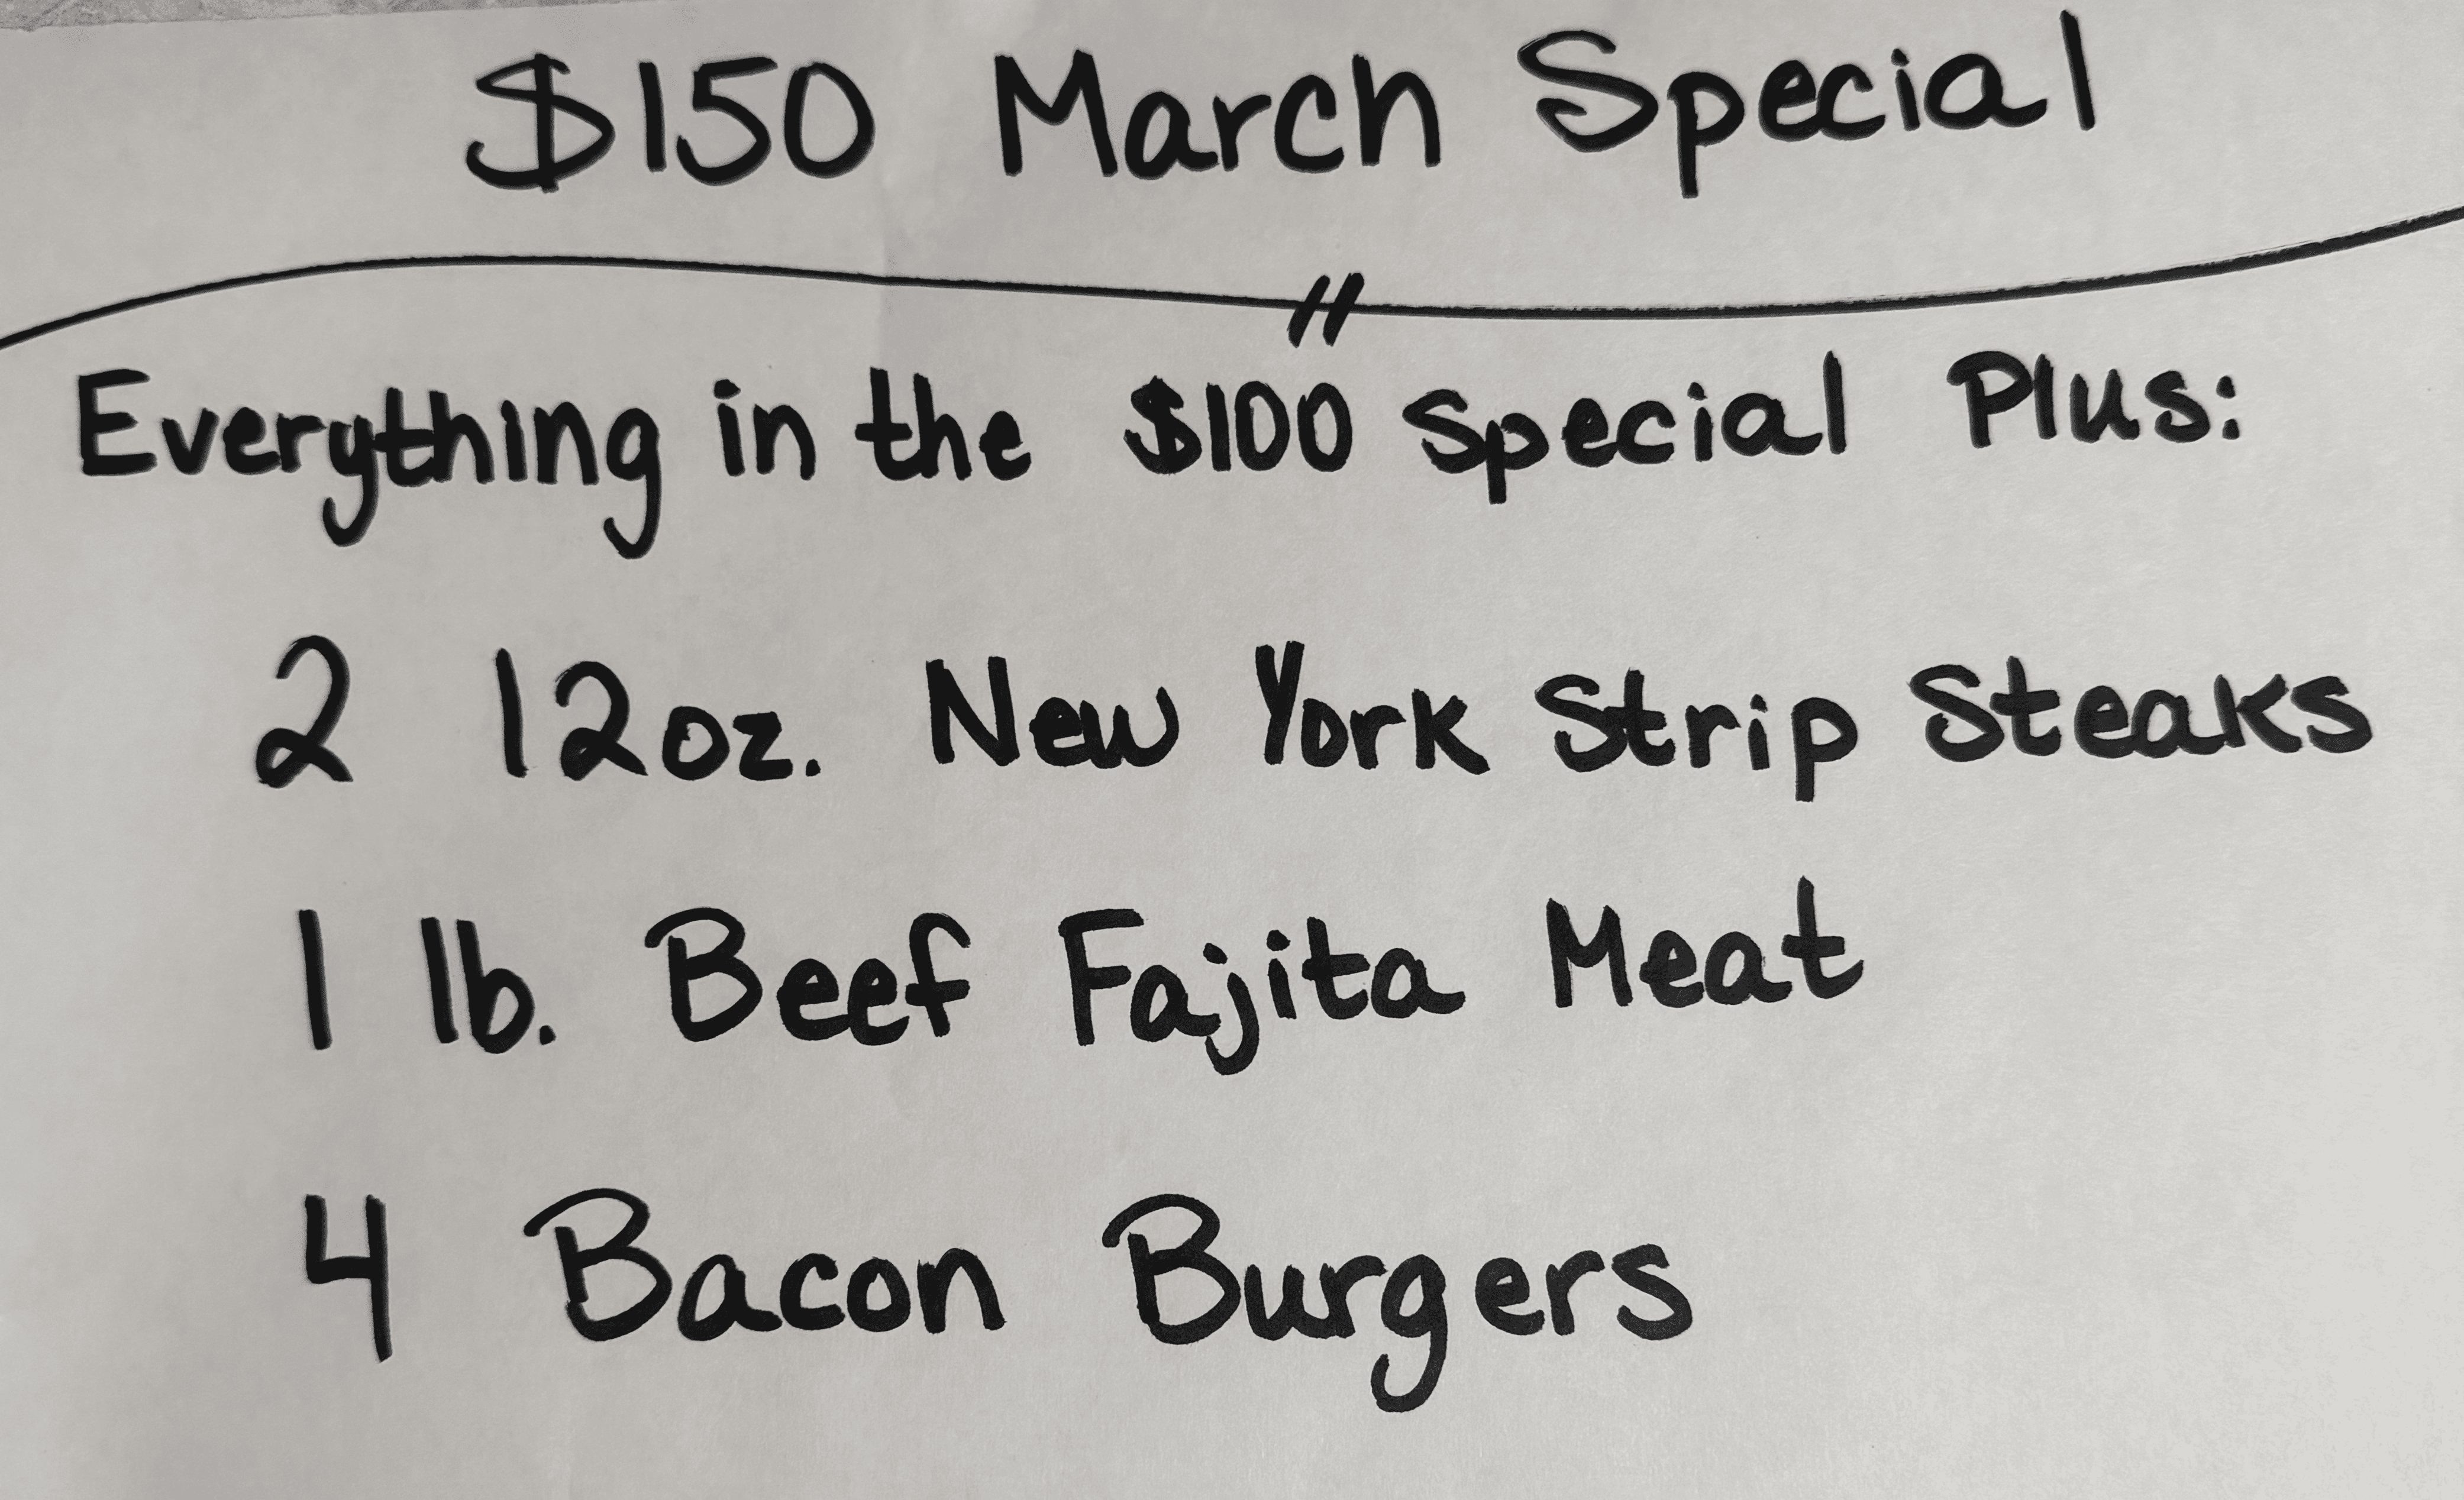 $150 March Special
Everything in the $100 Special Plus:
2 12oz. New York Strip Steaks
1 lb. Beef Fajita Meat
4 Bacon Burgers